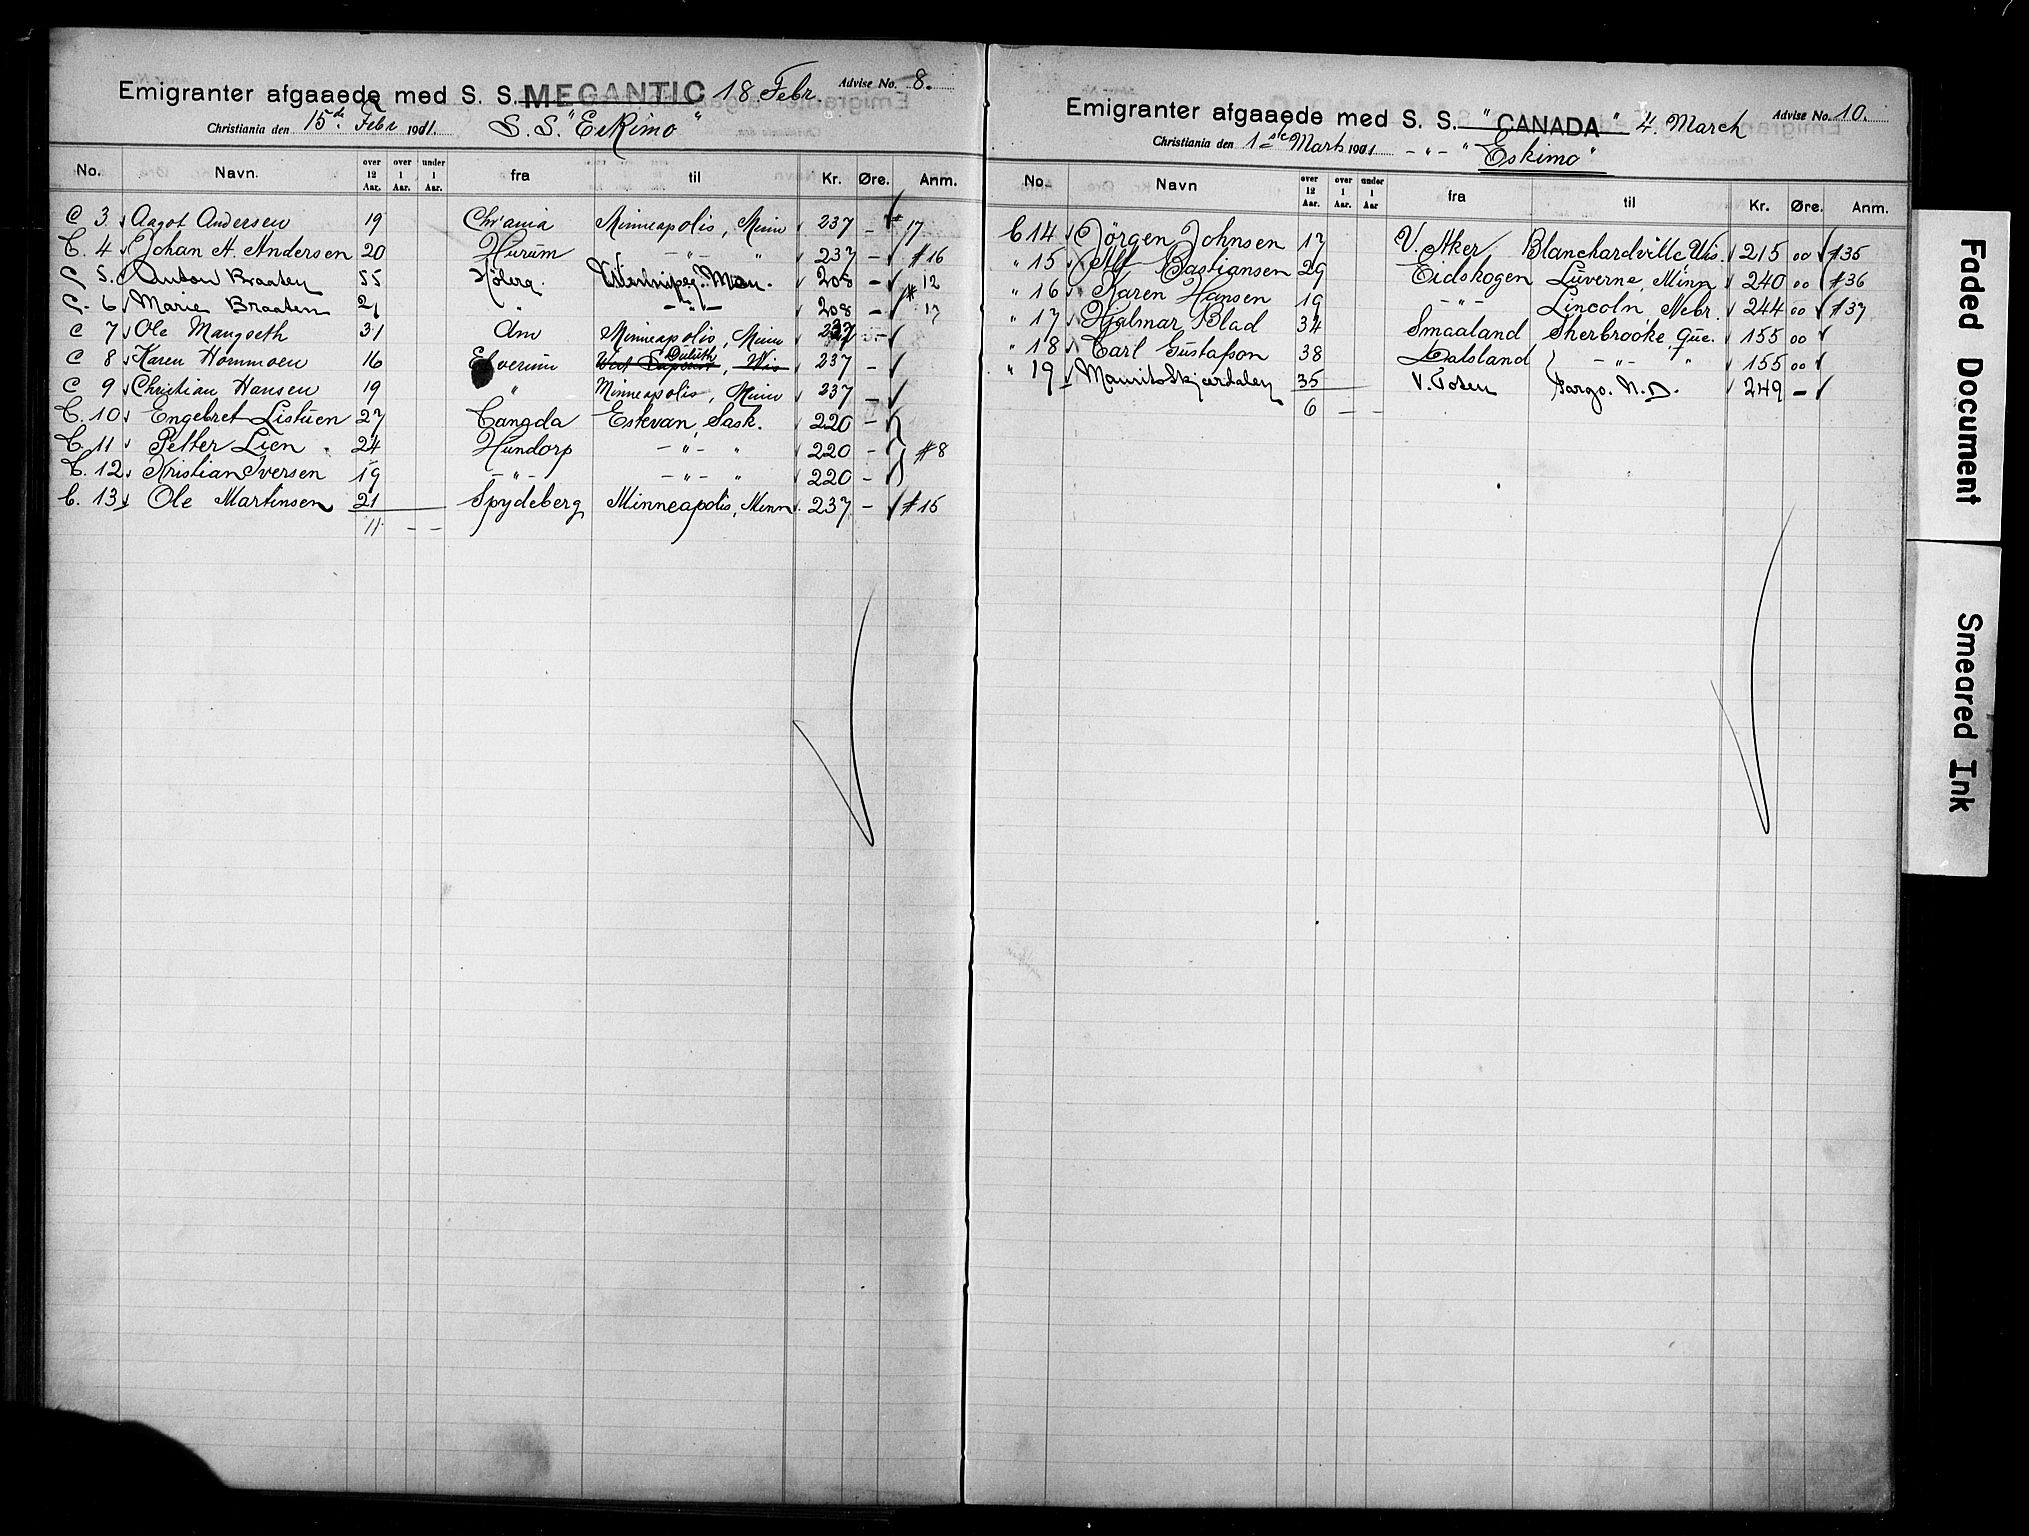 Emigranter afgaaede med S. S. MEGANTIC 18. Febr. Advise No. 8.
Christiania den 15de Febr 1911. S. S. "Eskimo"
No. Navn. over 12 Aar. over 1 Aar. under 1 Aar. fra til Kr. Øre. Anm.
C 3. Aagot Andersen 19 Chr'ania Minneapolis, Minn 237 - # 17
C. 4 Johan A. Andersen 20 Hurum - " - " 237 - #16
C 5. Anton Braaten 55 Winnipeg. Man. 208 - 12
C. 6 Marie Braaten 21 " - " - 208 - # 17
C 7 Ole Mangseth 31 Minneapolis, Minn 237 -
C 8 Karen Hommoen 16 Elverum West Superior, Wis Duluth 237 -
C 9 Christian Hansen 19 " Minneapolis, Minn 237 -
C. 10 Engebret Listuen 27 Canada Estevan, Sask. 220 -
C. 11 Petter Lien. 24 Hundorp - " - " 220 - #8
C. 12 Kristian Iversen 19 - " - - " - " 220 -
C. 13 Ole Martinsen 21 Spydeberg Minneapolis, Minn. 237 - #15
11 - -
Emigranter afgaaede med S. S. "CANADA" 4. March Advise No. 10.
Christiania den 1ste Marts 1911 - " - "Eskimo"
No. Navn over 12 Aar. over 1 Aar. under 1 Aar fra til Kr. Øre. Anm.
C 14 Jörgen Johnsen 17 V. Aker Blanchardville Wis. 215 00 #35
" 15 Alf Bastiansen 29 Eidskogen Luverne, Minn 240 00 #36
" 16 Karen Hansen 19 - " - Lincoln, Nebr. 244 00 #37
" 17 Hjalmar Blad 34 Smaaland Sherbrooke, Que. 155 00
" 18 Carl Gustafson 38 Dalsland - " - " 155 00
" 19 Maurits Skjerdalen 35 V. Toten Fargo. N. D. 249 -
6 - -
Faded Document
Smeared Ink